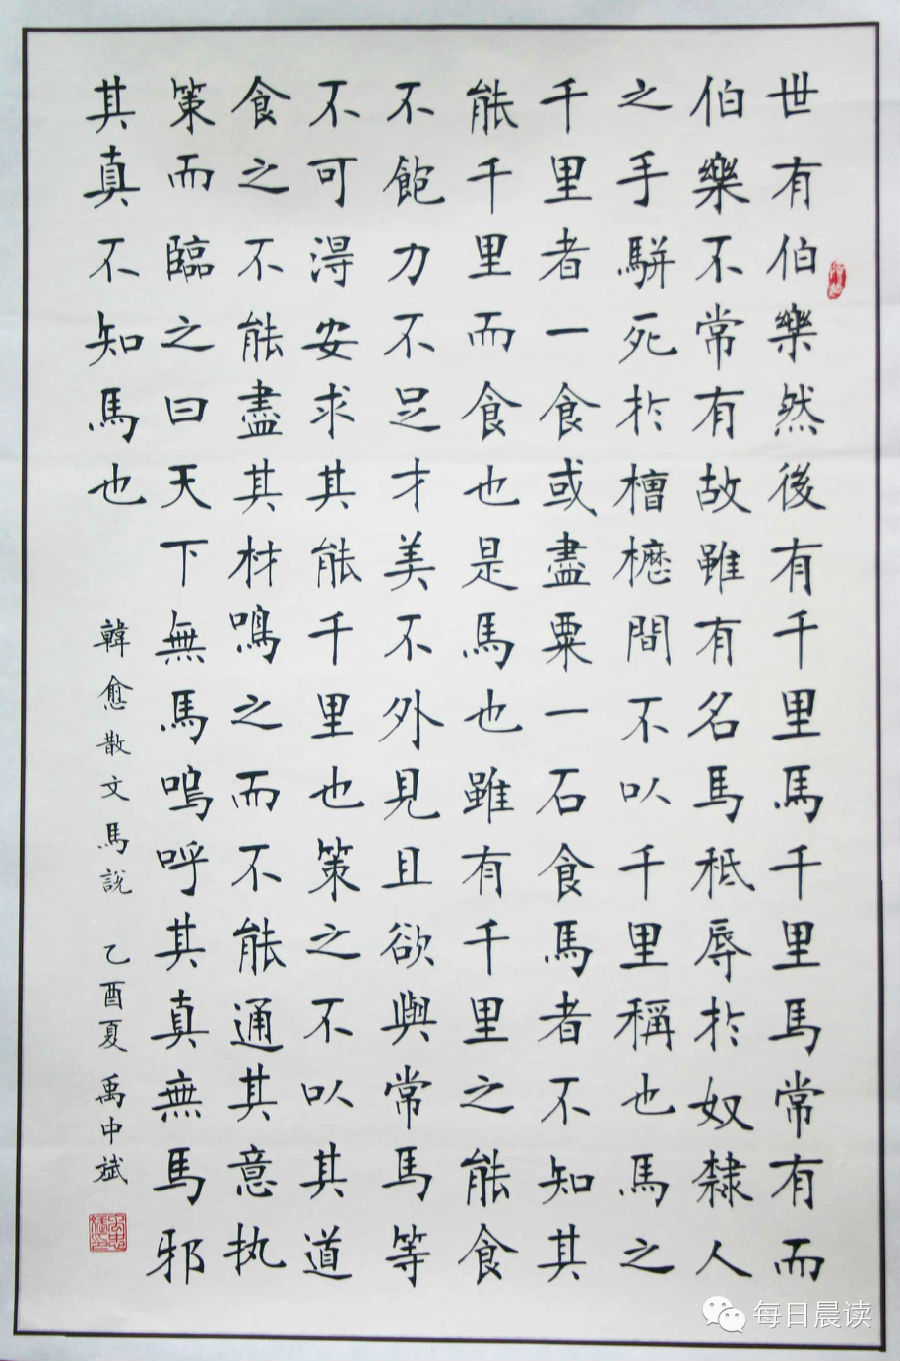 世有伯樂然後有千里馬千里馬常有而
伯樂不常有故雖有名馬秪辱於奴隸人
之手駢死於槽櫪間不以千里稱也馬之
千里者一食或盡粟一石食馬者不知其
能千里而食也是馬也雖有千里之能食
不飽力不足才美不外見且欲與常馬等
不可得安求其能千里也策之不以其道
食之不能盡其材鳴之而不能通其意执
策而臨之曰天下無馬嗚呼其真無馬邪
其真不知馬也
韓愈散文馬說 乙酉夏 禹中斌
每日晨读